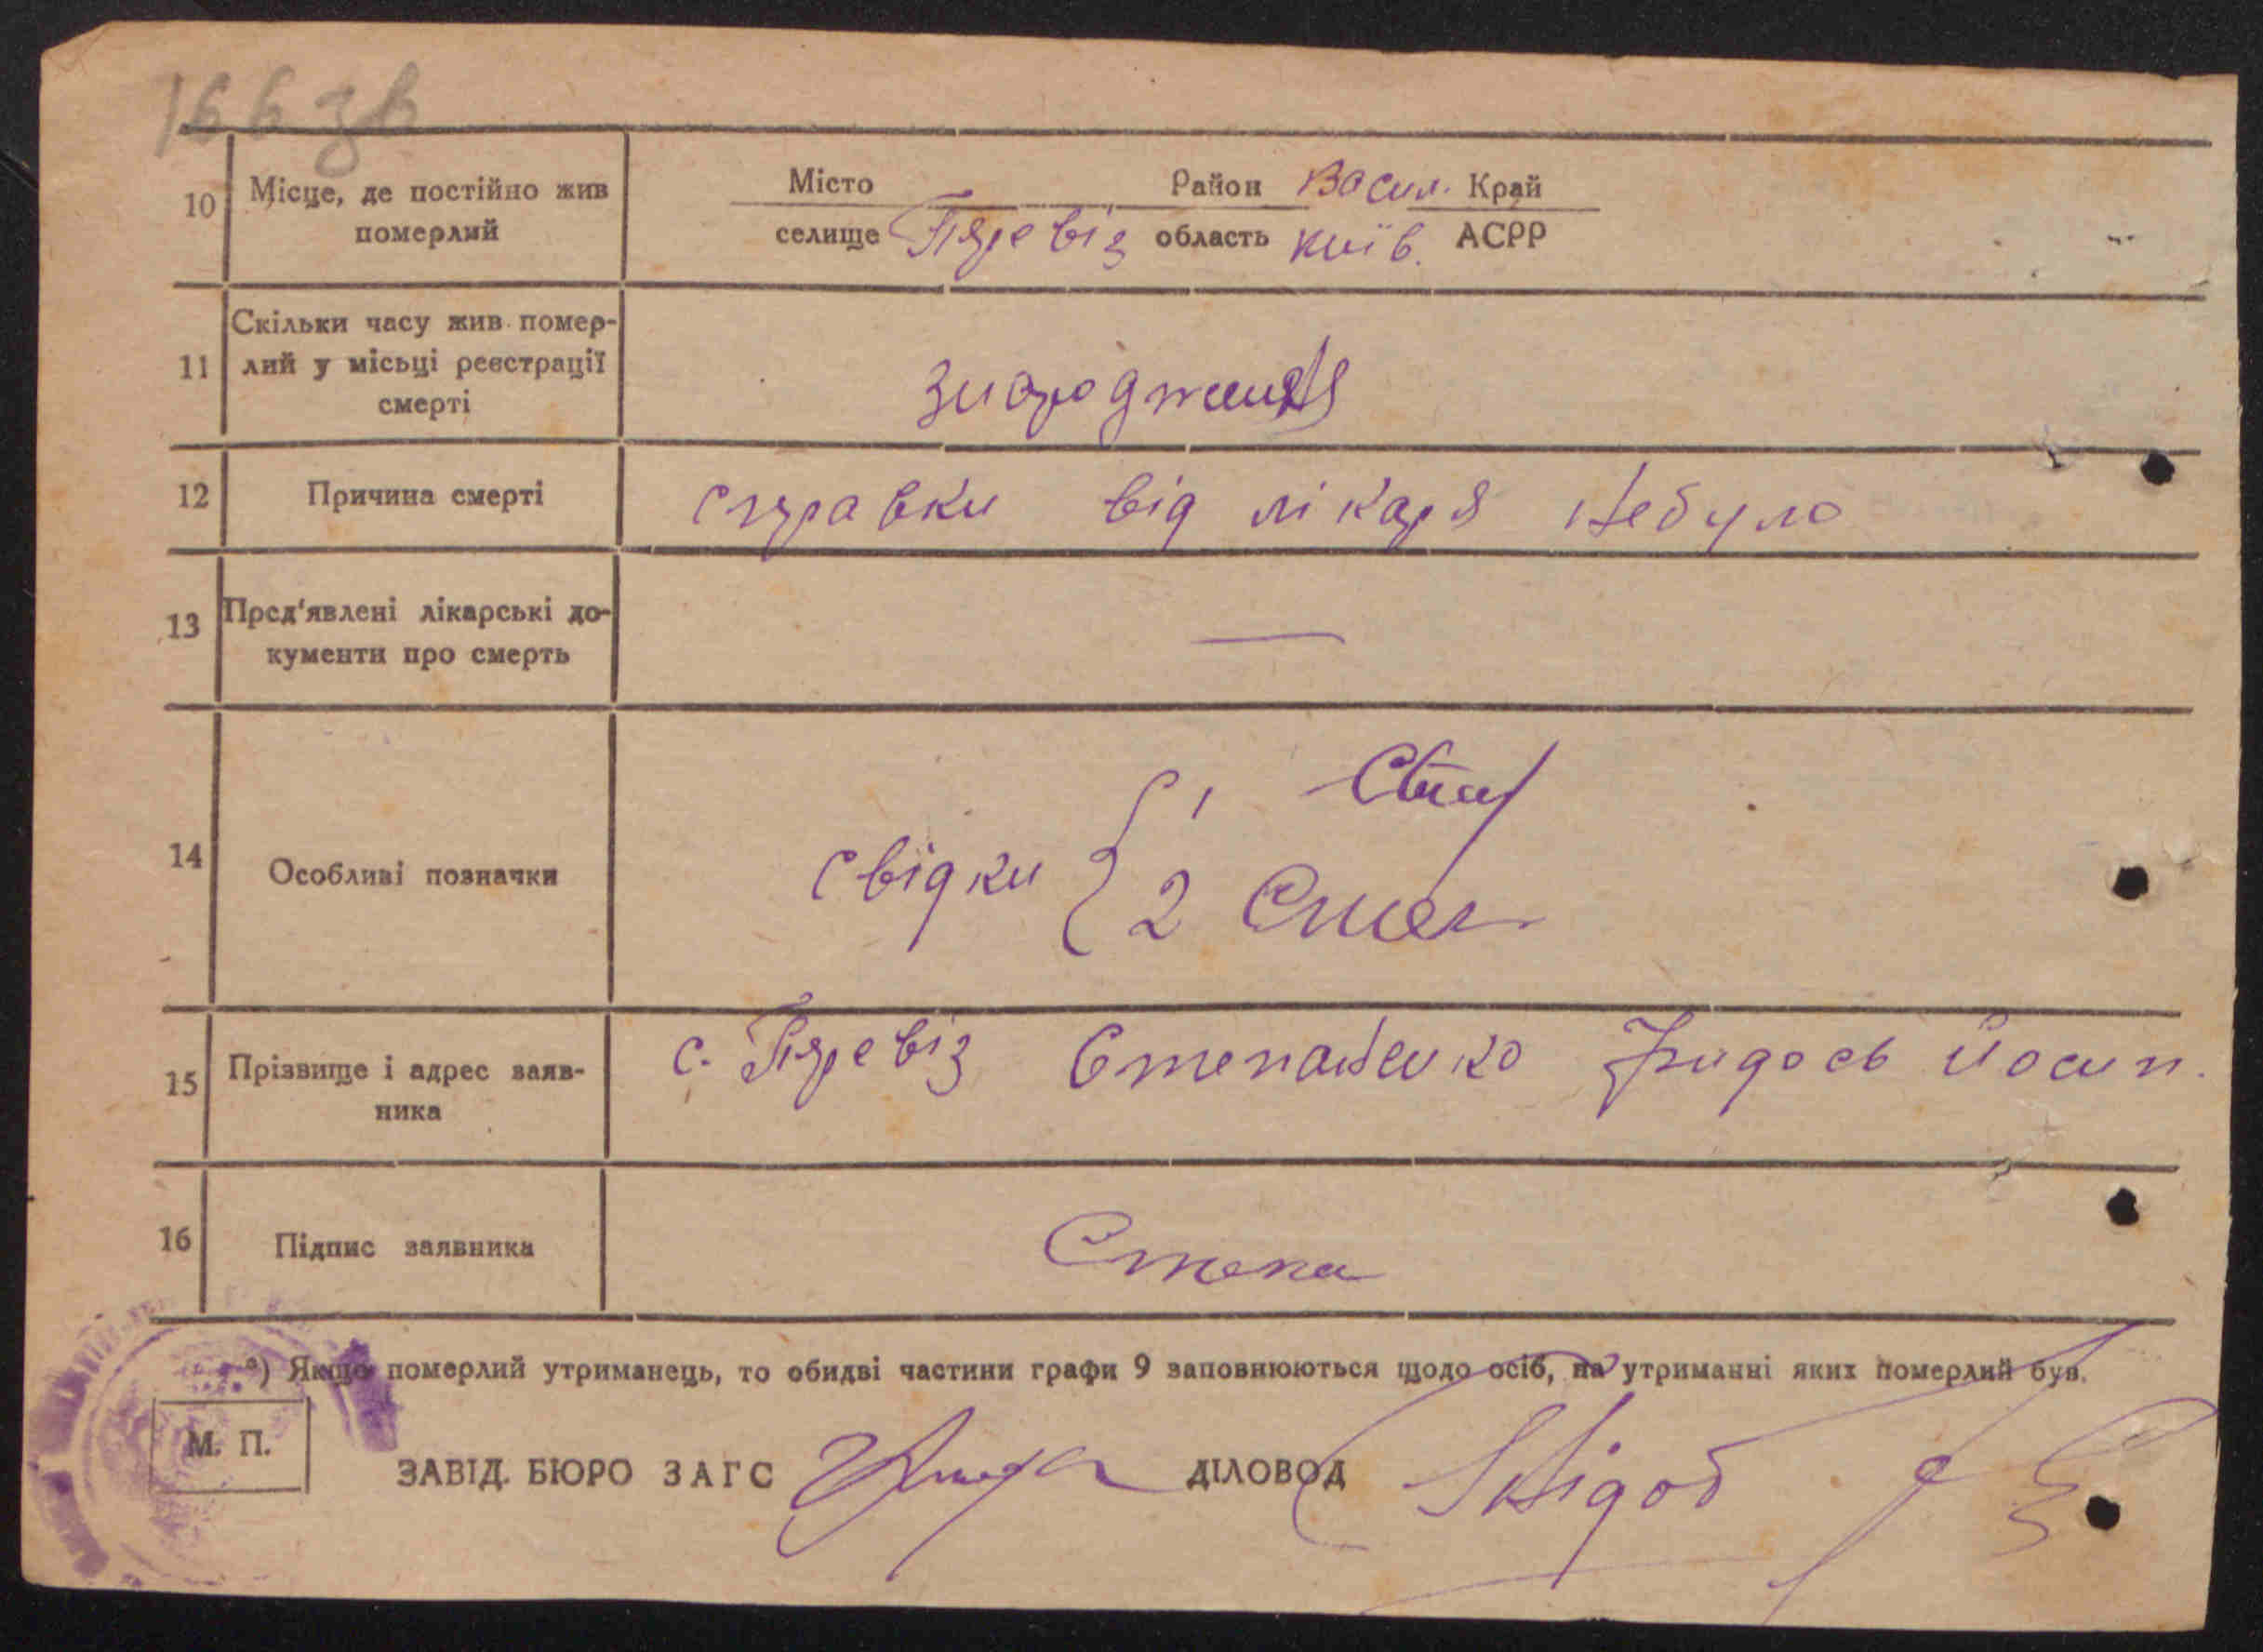 166 зв
10 Місце, де постійно жив померлий
Місто Район Васил. Край
селище Перевіз область Київ. АСРР
11 Скільки часу жив помер-
лий у місьці реєстрації
смерті
знародження
12 Причина смерті справки від лікаря небуло
13 Пред'явлені лікарські до-
кументи про смерть —
14 Особливі позначки
свідки { 1
2
15 Прізвище і адрес заяв-
ника
с. Перевіз Степаненко Йосип.
16 Підпис заявника Степа
*) Якщо померлий утриманець, то обидві частини графи 9 заповнюються щодо осіб, на утриманні яких померлий був.
М. П.
ЗАВІД. БЮРО ЗАГС ДІЛОВОД